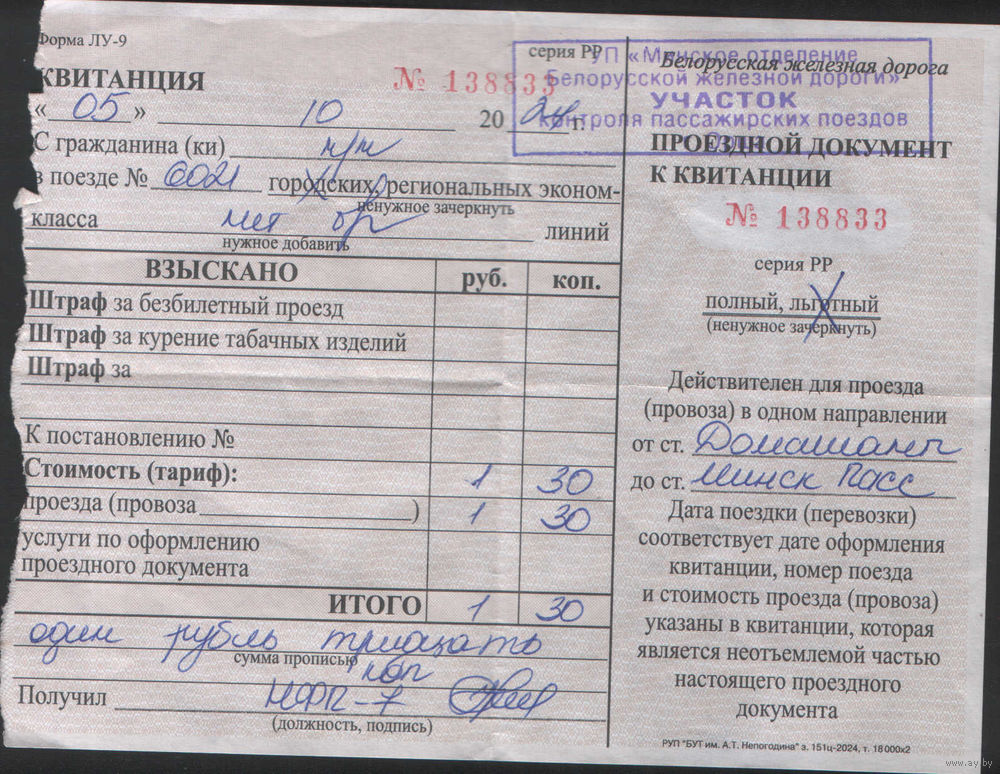 Форма ЛУ-9
серия РР
КВИТАНЦИЯ
№ 138833
« 05 » 10 20 24 г.
С гражданина (ки) н/п
в поезде № 6021 городских, региональных эконом-
ненужное зачеркнуть
класса нет линий
нужное добавить
ВЗЫСКАНО руб. коп.
Штраф за безбилетный проезд
Штраф за курение табачных изделий
Штраф за
К постановлению №
Стоимость (тариф): 1 30
проезда (провоза ) 1 30
услуги по оформлению
проездного документа
ИТОГО 1 30
один рубль тридцать
сумма прописью
коп
Получил
(должность, подпись)
РУП «Минское отделение
Белорусской железной дороги»
УЧАСТОК
контроля пассажирских поездов
Белорусская железная дорога
ПРОЕЗДНОЙ ДОКУМЕНТ
К КВИТАНЦИИ
№ 138833
серия РР
полный, льготный
(ненужное зачеркнуть)
Действителен для проезда
(провоза) в одном направлении
от ст. Домашаны
до ст. Минск Пасс
Дата поездки (перевозки)
соответствует дате оформления
квитанции, номер поезда
и стоимость проезда (провоза)
указаны в квитанции, которая
является неотъемлемой частью
настоящего проездного
документа
РУП "БУТ им. А.Т. Непогодина" з. 151ц-2024, т. 18 000х2
www.ay.by